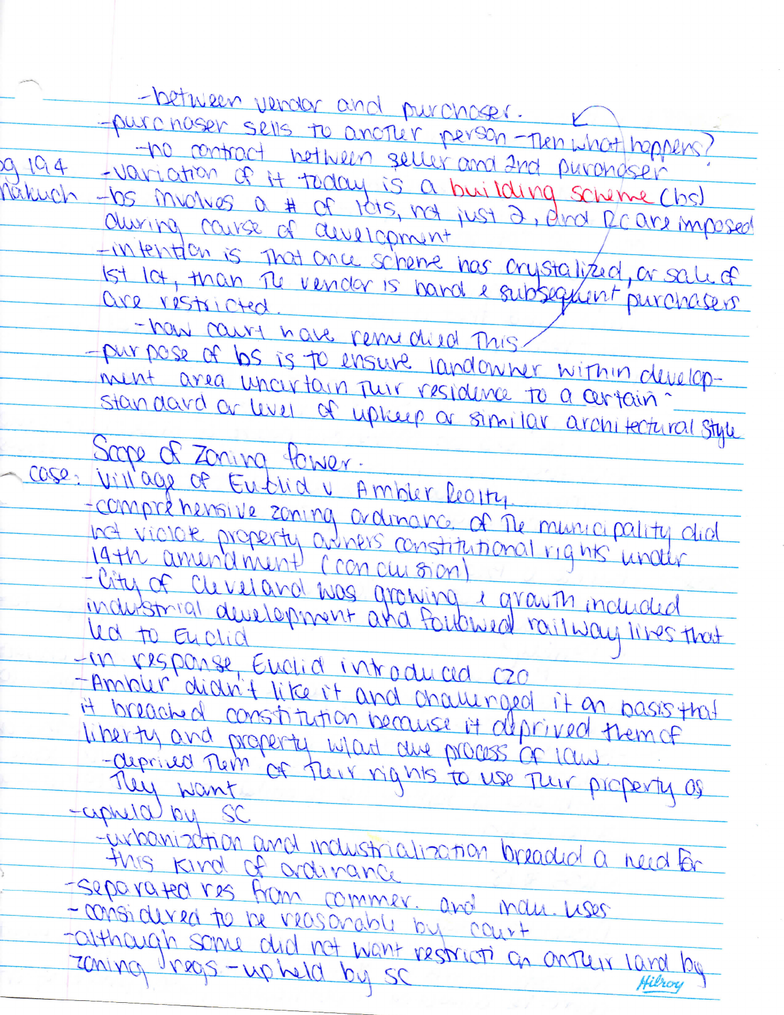 -between vendor and purchaser.
-purchaser sells to another person - then what happens?
-no contract between seller and 2nd purchaser
pg 194 -variation of it today is a building scheme (bs)
makuch -bs involves a # of lots, not just 2, and RC are imposed
during course of development
-intention is that once scheme has crystalized, or sale of
1st lot, than the vendor is bond & subsequent purchasers
are restricted.
-how court have remedied this
-purpose of bs is to ensure landowner within develop-
ment area their residence to a certain
standard or level of upkeep or similar architectural style
Scope of Zoning Power.
case: Village of Euclid v Ambler Realty
-comprehensive zoning ordinanc of the municipality did
not violate property owners constitutional rights under
14th amendment (conclusion)
-City of Cleveland was growing & growth included
industrial development and followed railway lines that
led to Euclid
-in response, Euclid introduced CZO
-Ambler didn't like it and challenged it on basis that
it breached constitution because it deprived them of
liberty and property w/out due process of law.
-deprived them of their rights to use their property as
they want
-upheld by SC
-urbanization and industrialization breaded a need for
this kind of ordinance
-separated res from commer. and indu. uses
-considered to be reasonable by court
-although some did not want restriction on their land by
zoning regs - upheld by SC
Hilroy